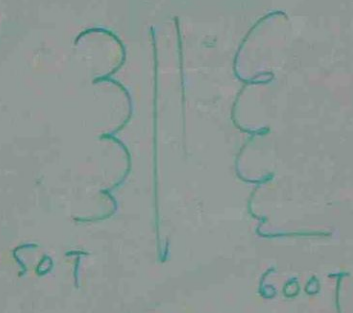 50T
600T